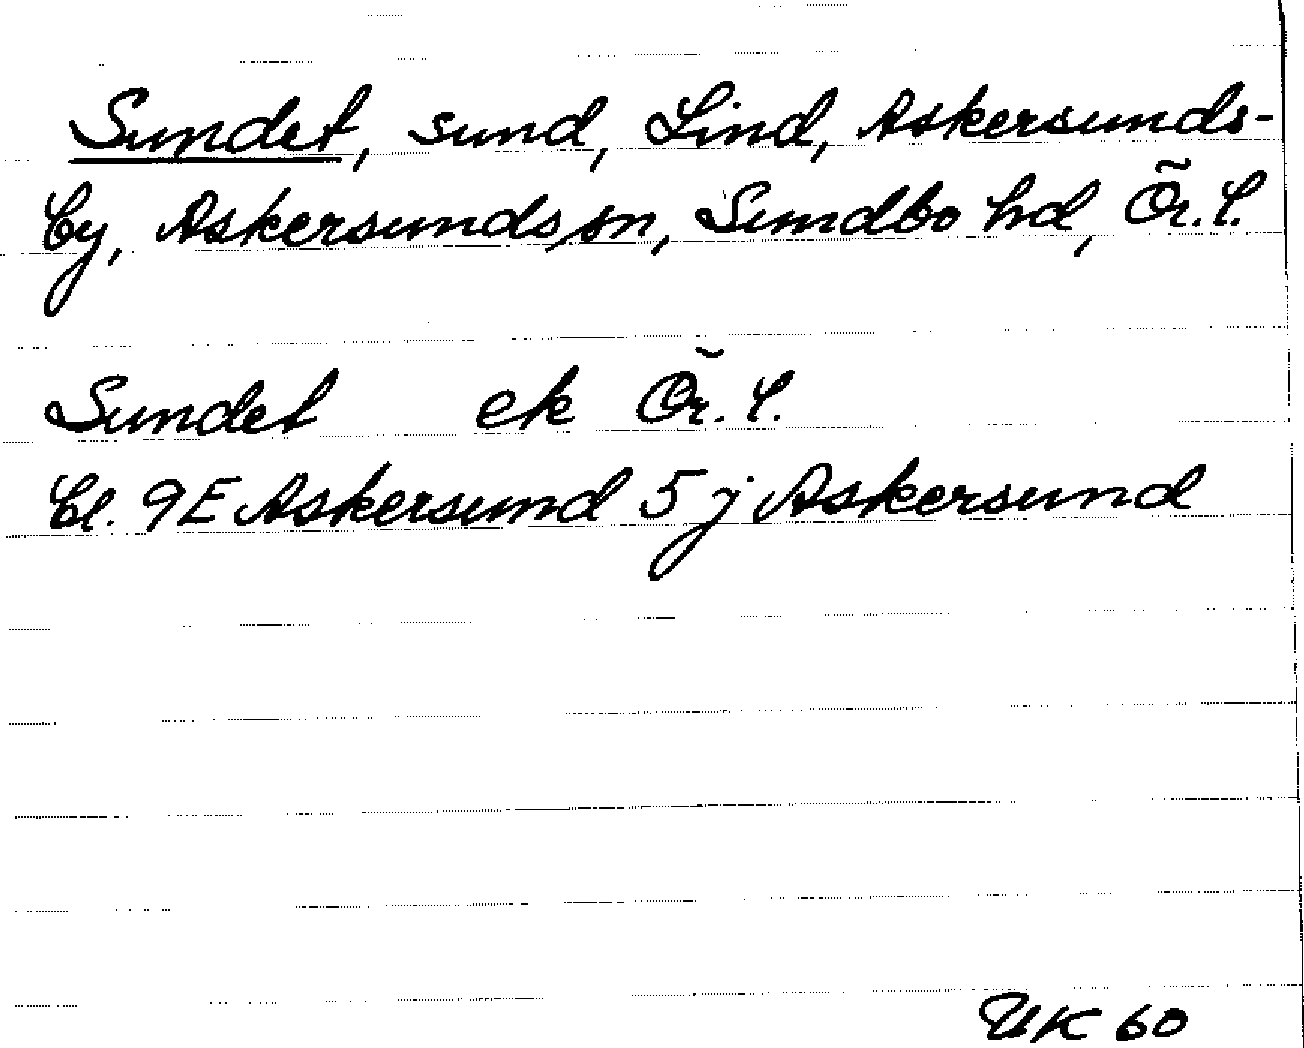 Sundet, sund, Lind, Askersunds-
by, Askersunds sn, Sundbo hd, Ör. l.
Sundet ek Ör. l.
bl. 9E Askersund 5 j Askersund
UK 60